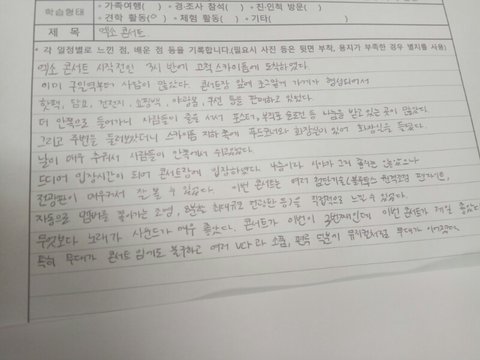 학습형태
• 가족여행( ) • 경·조사 참석( ) • 친·인척 방문( )
• 견학 활동(○) • 체험 활동( ) • 기타( )
제 목 엑소 콘서트
* 각 일정별로 느낀 점, 배운 점 등을 기록합니다.(필요시 사진 등은 뒷면 부착, 용지가 부족한 경우 별지를 사용)
엑소 콘서트 시작전인 3시 반에 고척스카이돔에 도착하였다.
이미 구일역부터 사람이 많았다. 콘서트장 앞에 조그맣게 가게가 형성되어서
핫팩, 담요, 건전지, 쇼핑백, 야광봉, 우선 등을 판매하고 있었다.
더 안쪽으로 들어가니 사람들이 줄을 서서 포스터, 부채 등 나눔을 받고 있는 곳이 많았다.
그리고 주변을 둘러보았더니 스카이돔 지하 쪽에 푸드코너와 화장실이 있어 화장실을 들렸다.
날이 매우 추워서 사람들이 안쪽에서 쉬고있었다.
드디어 입장시간이 되어 콘서트장에 입장하였다. 4층이라
전광판이 매우커서 잘 볼 수 있었다. 이번 콘서트는 여러 첨단기술(블루투스 원격조정 팬라이트,
자동으로 멤버를 찾아가는 조명, 최대규모 전광판 등)을 직접적으로 느낄 수 있었다.
무엇보다 노래가 사운드가 매우 좋았다. 콘서트가 이번이 3번째인데 이번 콘서트가 제일 좋았다.
특히 무대가 콘서트 임에도 불구하고 여러 VCR과 소품, 덕분에 뮤지컬처럼 무대가